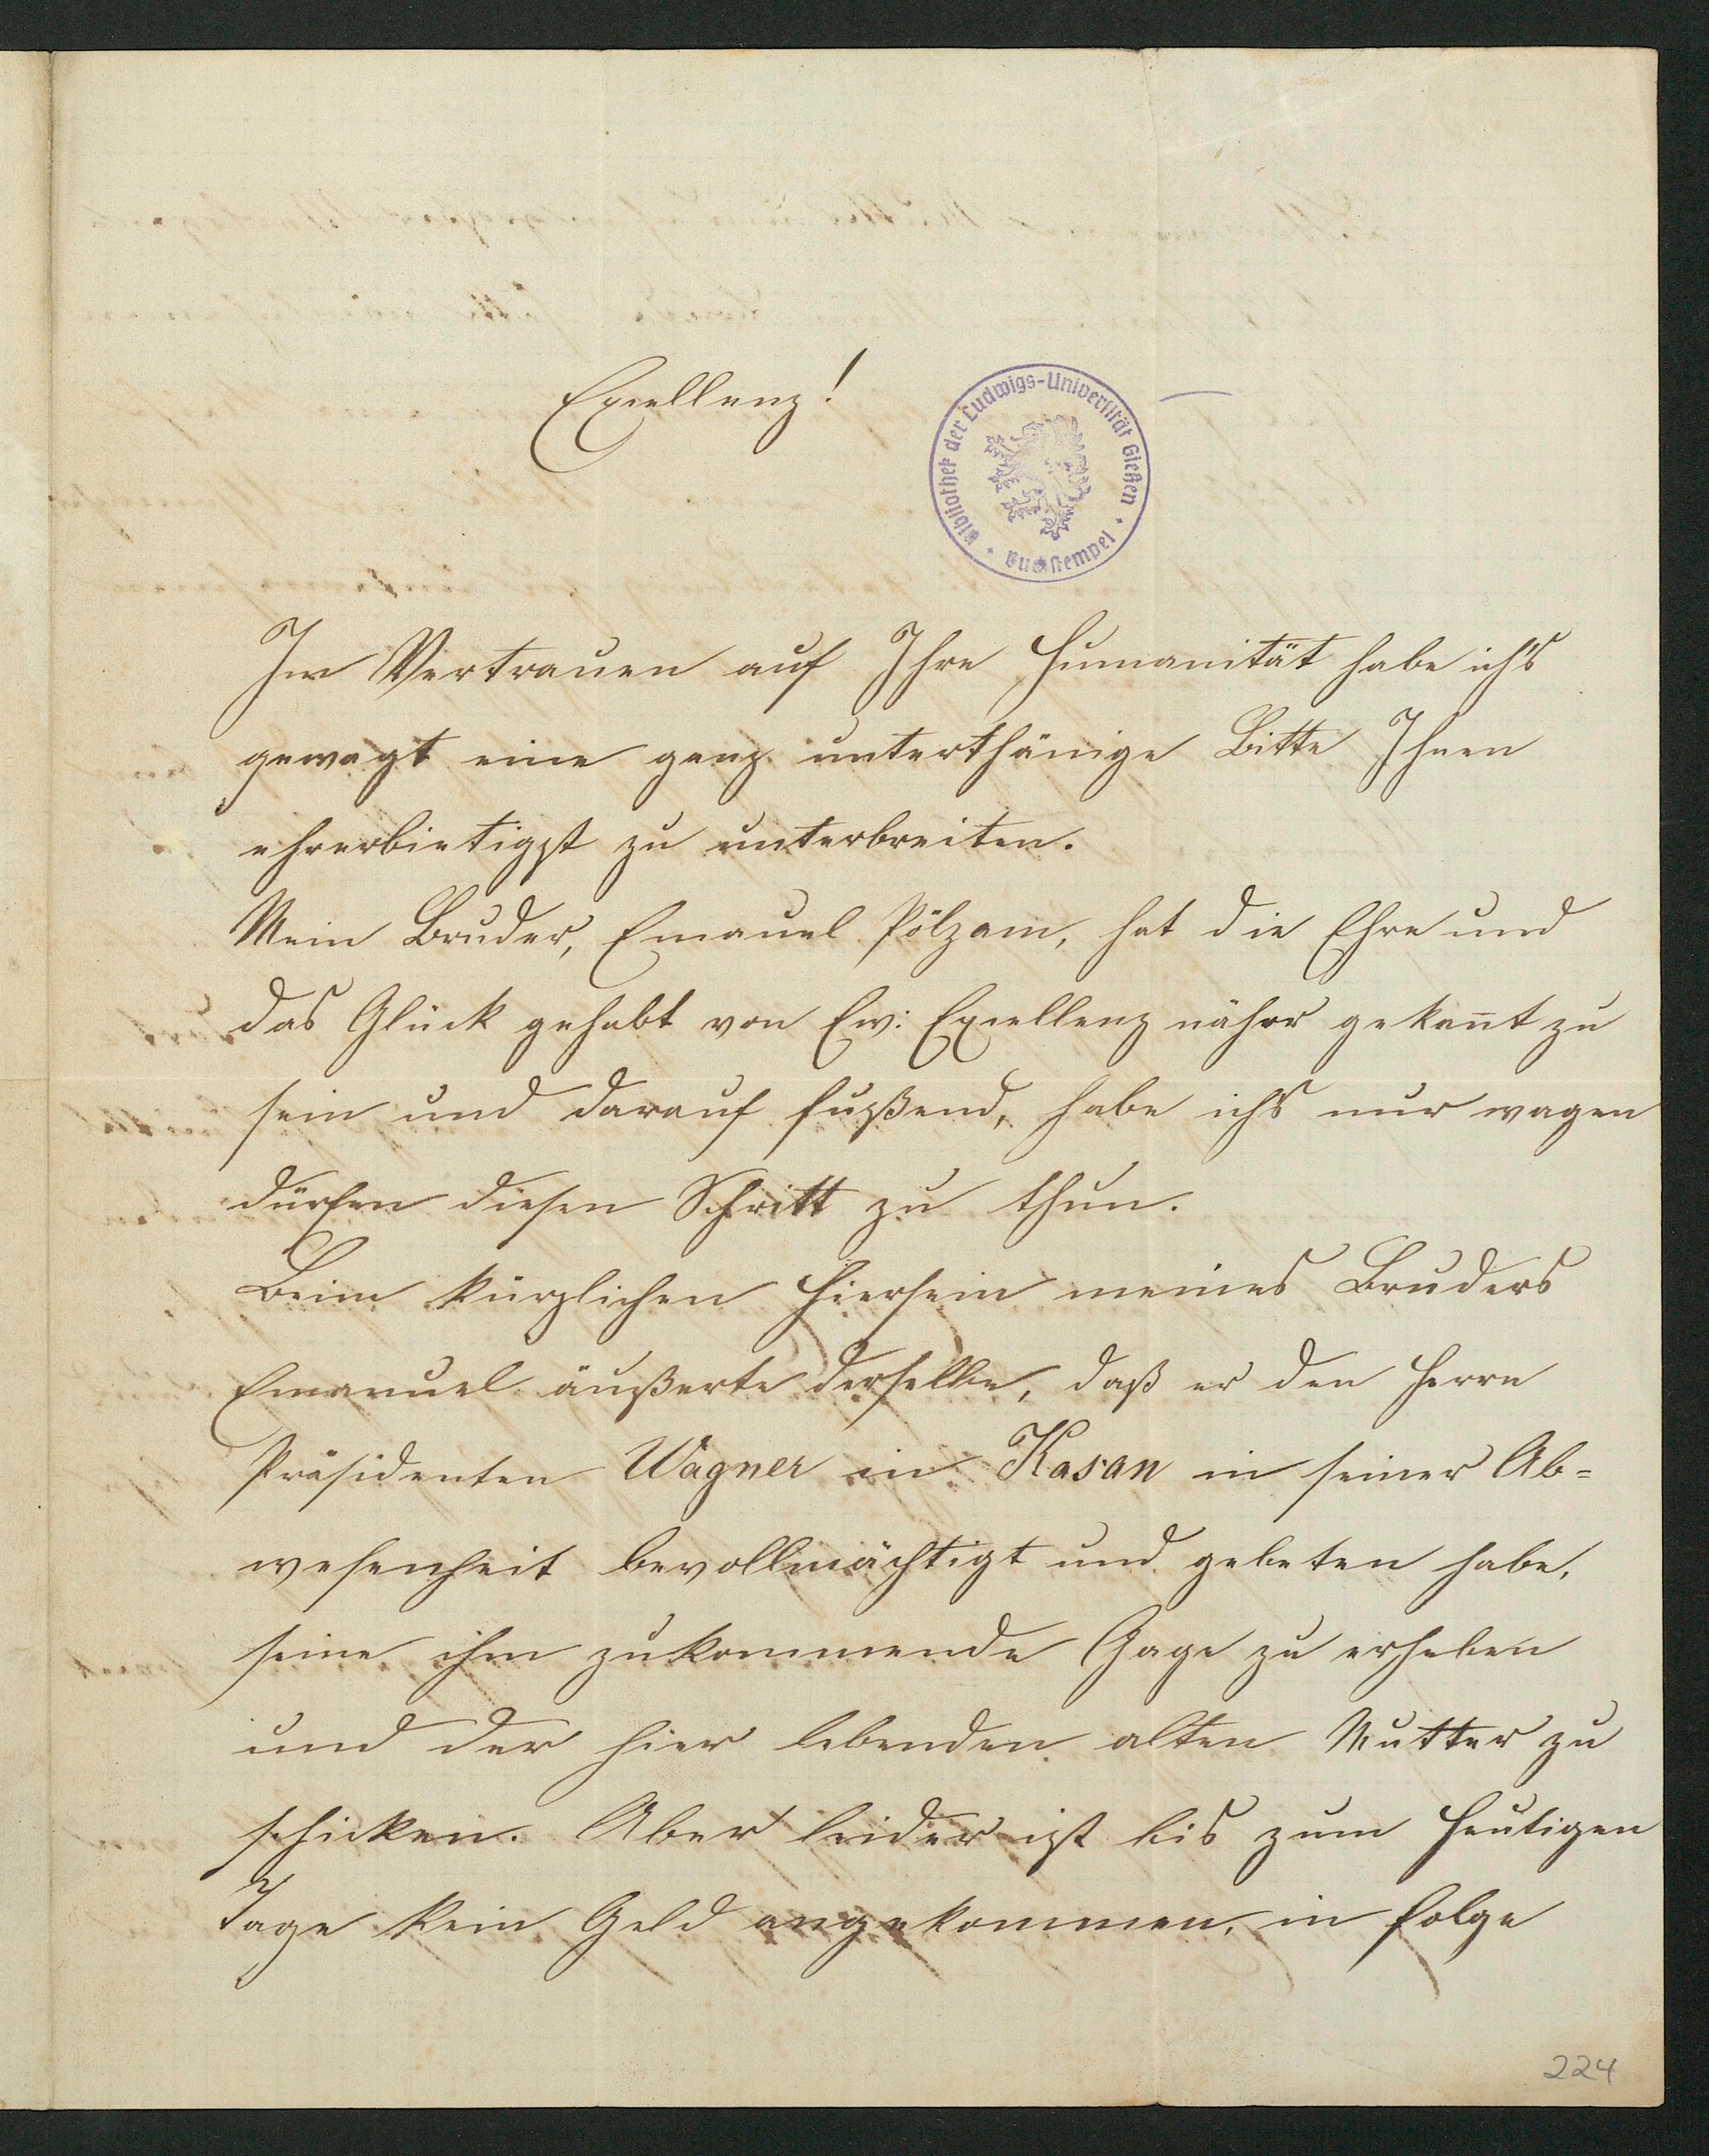 Excellenz!
Bibliothek der Ludwigs-Universität Gießen
Buchstempel
Im Vertrauen auf Ihre Humanität habe ich's
gewagt eine ganz unterthänige Bitte Ihnen
ehrerbietigst zu unterbreiten.
Mein Bruder, Emanuel Pölzam, hat die Ehre und
das Glück gehabt von Ew: Excellenz näher gekannt zu
sein und darauf fußend, habe ich's nur wagen
dürfen diesen Schritt zu thun.
Beim kürzlichen Hiersein meines Bruders
Emanuel äußerte derselbe, daß er den Herrn
Präsidenten Wagner in Kasan in seiner Ab=
wesenheit bevollmächtigt und gebeten habe,
seine ihm zukommende Gage zu erheben
und der hier lebenden alten Mutter zu
schicken. Aber leider ist bis zum heutigen
Tage kein Geld angekommen, in Folge
224